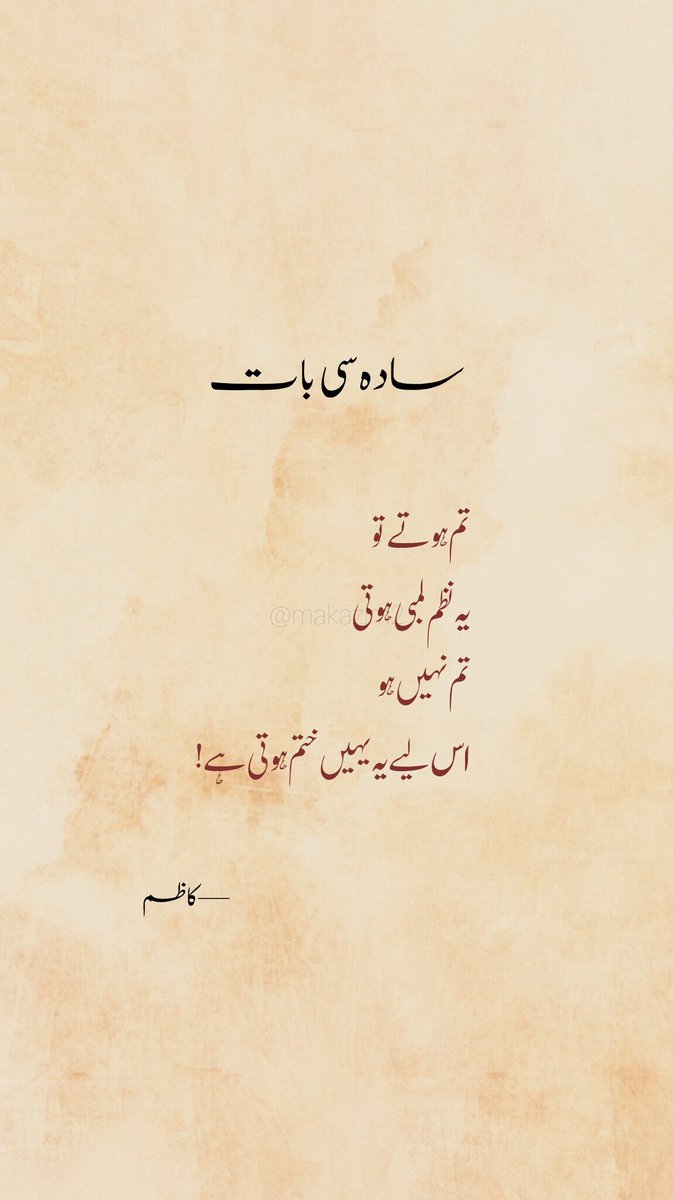 سادہ سی بات
تم ہوتے تو
یہ نظم لمبی ہوتی
تم نہیں ہو
اس لیے یہ یہیں ختم ہوتی ہے!
—کاظم